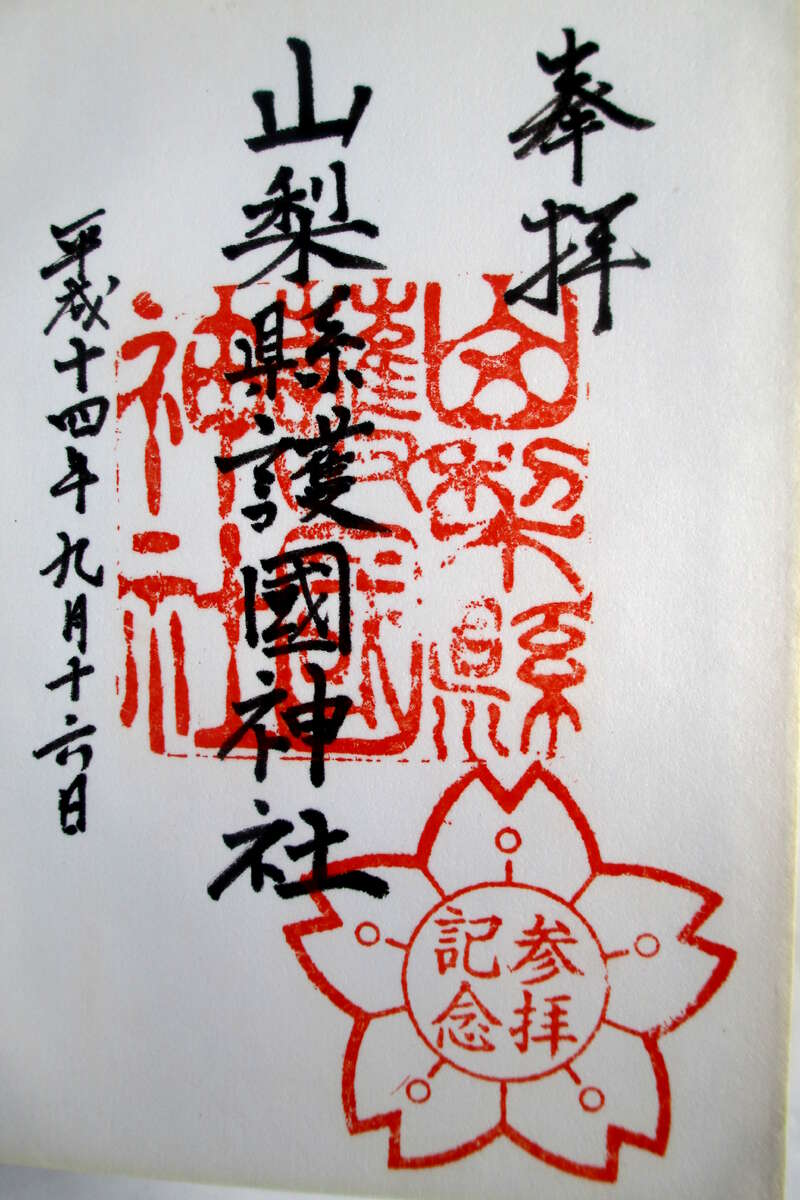 奉拝
山梨縣護國神社
平成十四年九月十六日
山梨縣
護國
神社
参拝
記念